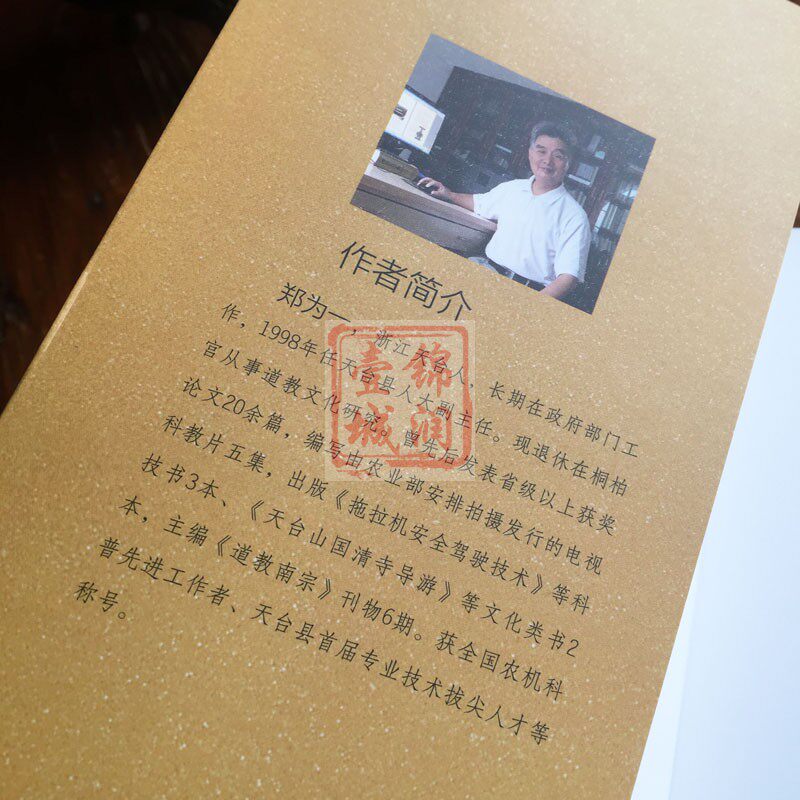 作者简介
郑为一，浙江天台人，长期在政府部门工
作，1998年任天台县人大副主任。现退休在桐柏
官从事道教文化研究。曾先后发表省级以上获奖
论文20余篇，编写由农业部安排拍摄发行的电视
科教片五集，出版《拖拉机安全驾驶技术》等科
技书3本、《天台山国清寺导游》等文化类书2
本，主编《道教南宗》刊物6期。获全国农机科
普先进工作者、天台县首届专业技术拔尖人才等
称号。
锦润
壹城